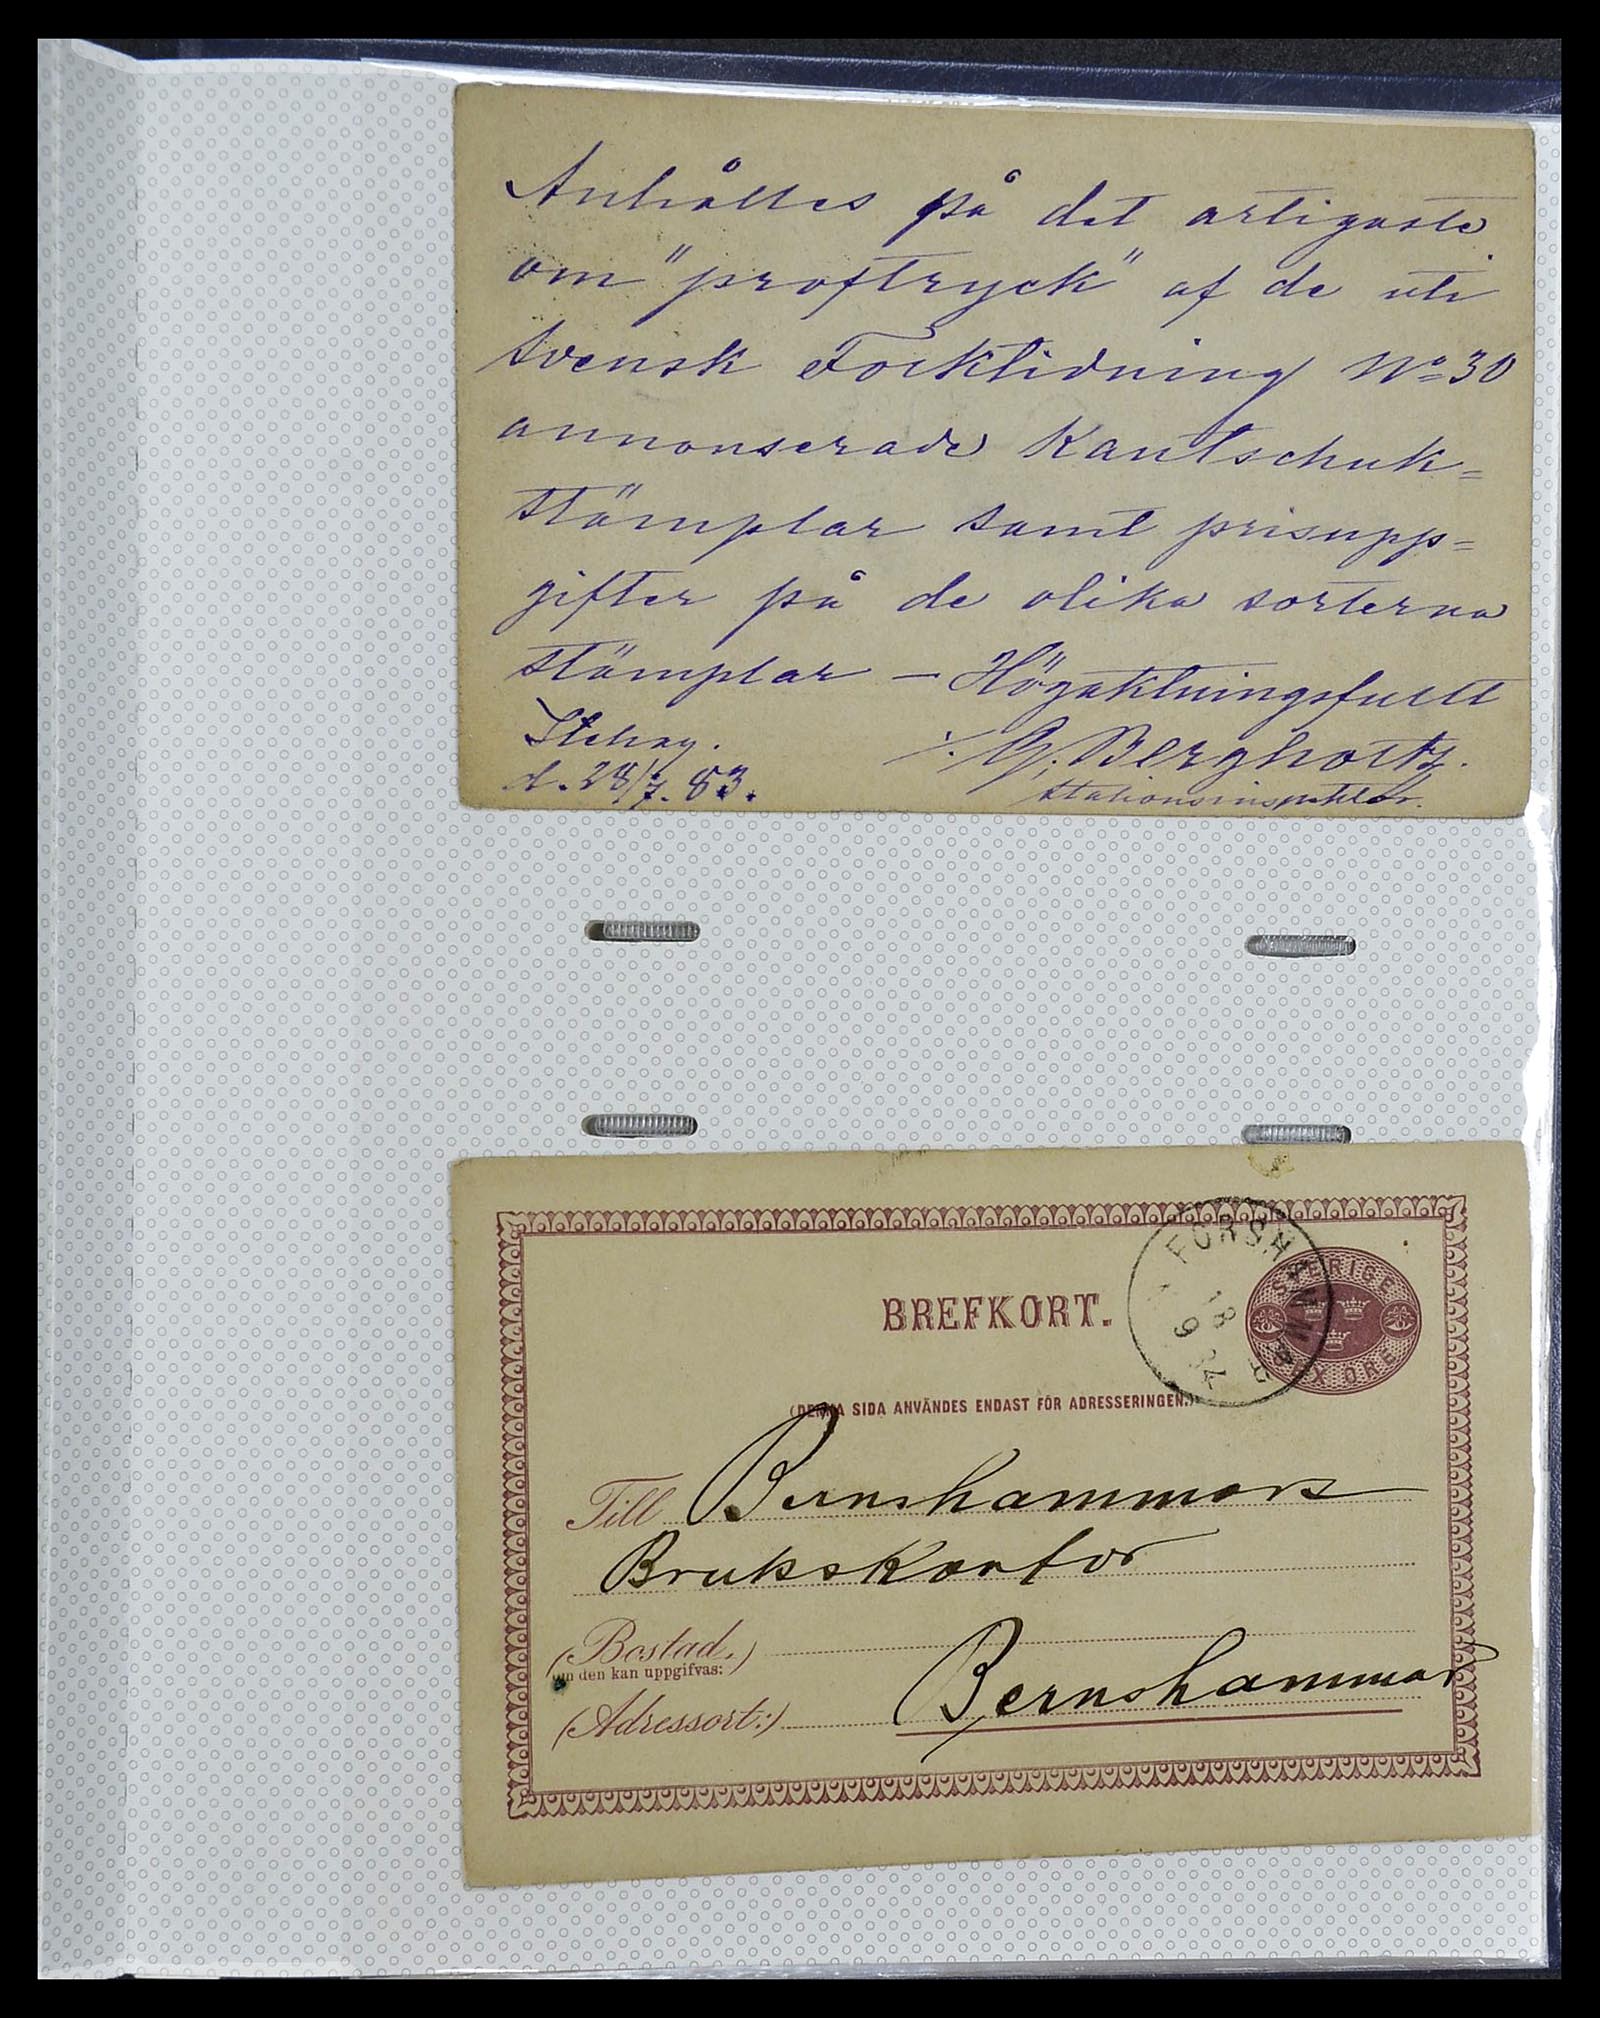 Anhålles på det artigaste
om "proftryck" af de uti
Svensk Facktidning No 30
annonserade Kautschuk=
stämplar samt prisupp=
gifter på de olika sorterna
stämplar – Högaktningsfullt
Stehag.
d. 28/7. 83.
G. Bergholtz.
stationsinspektor.
FORSHAMMAR
18
9
SVERIGE
ÖRE
BREFKORT.
(DENNA SIDA ANVÄNDES ENDAST FÖR ADRESSERINGEN.)
Till Bernshammars
Brukskontor
(Bostad,
om den kan uppgifvas:)
(Adressort:) Bernshammar